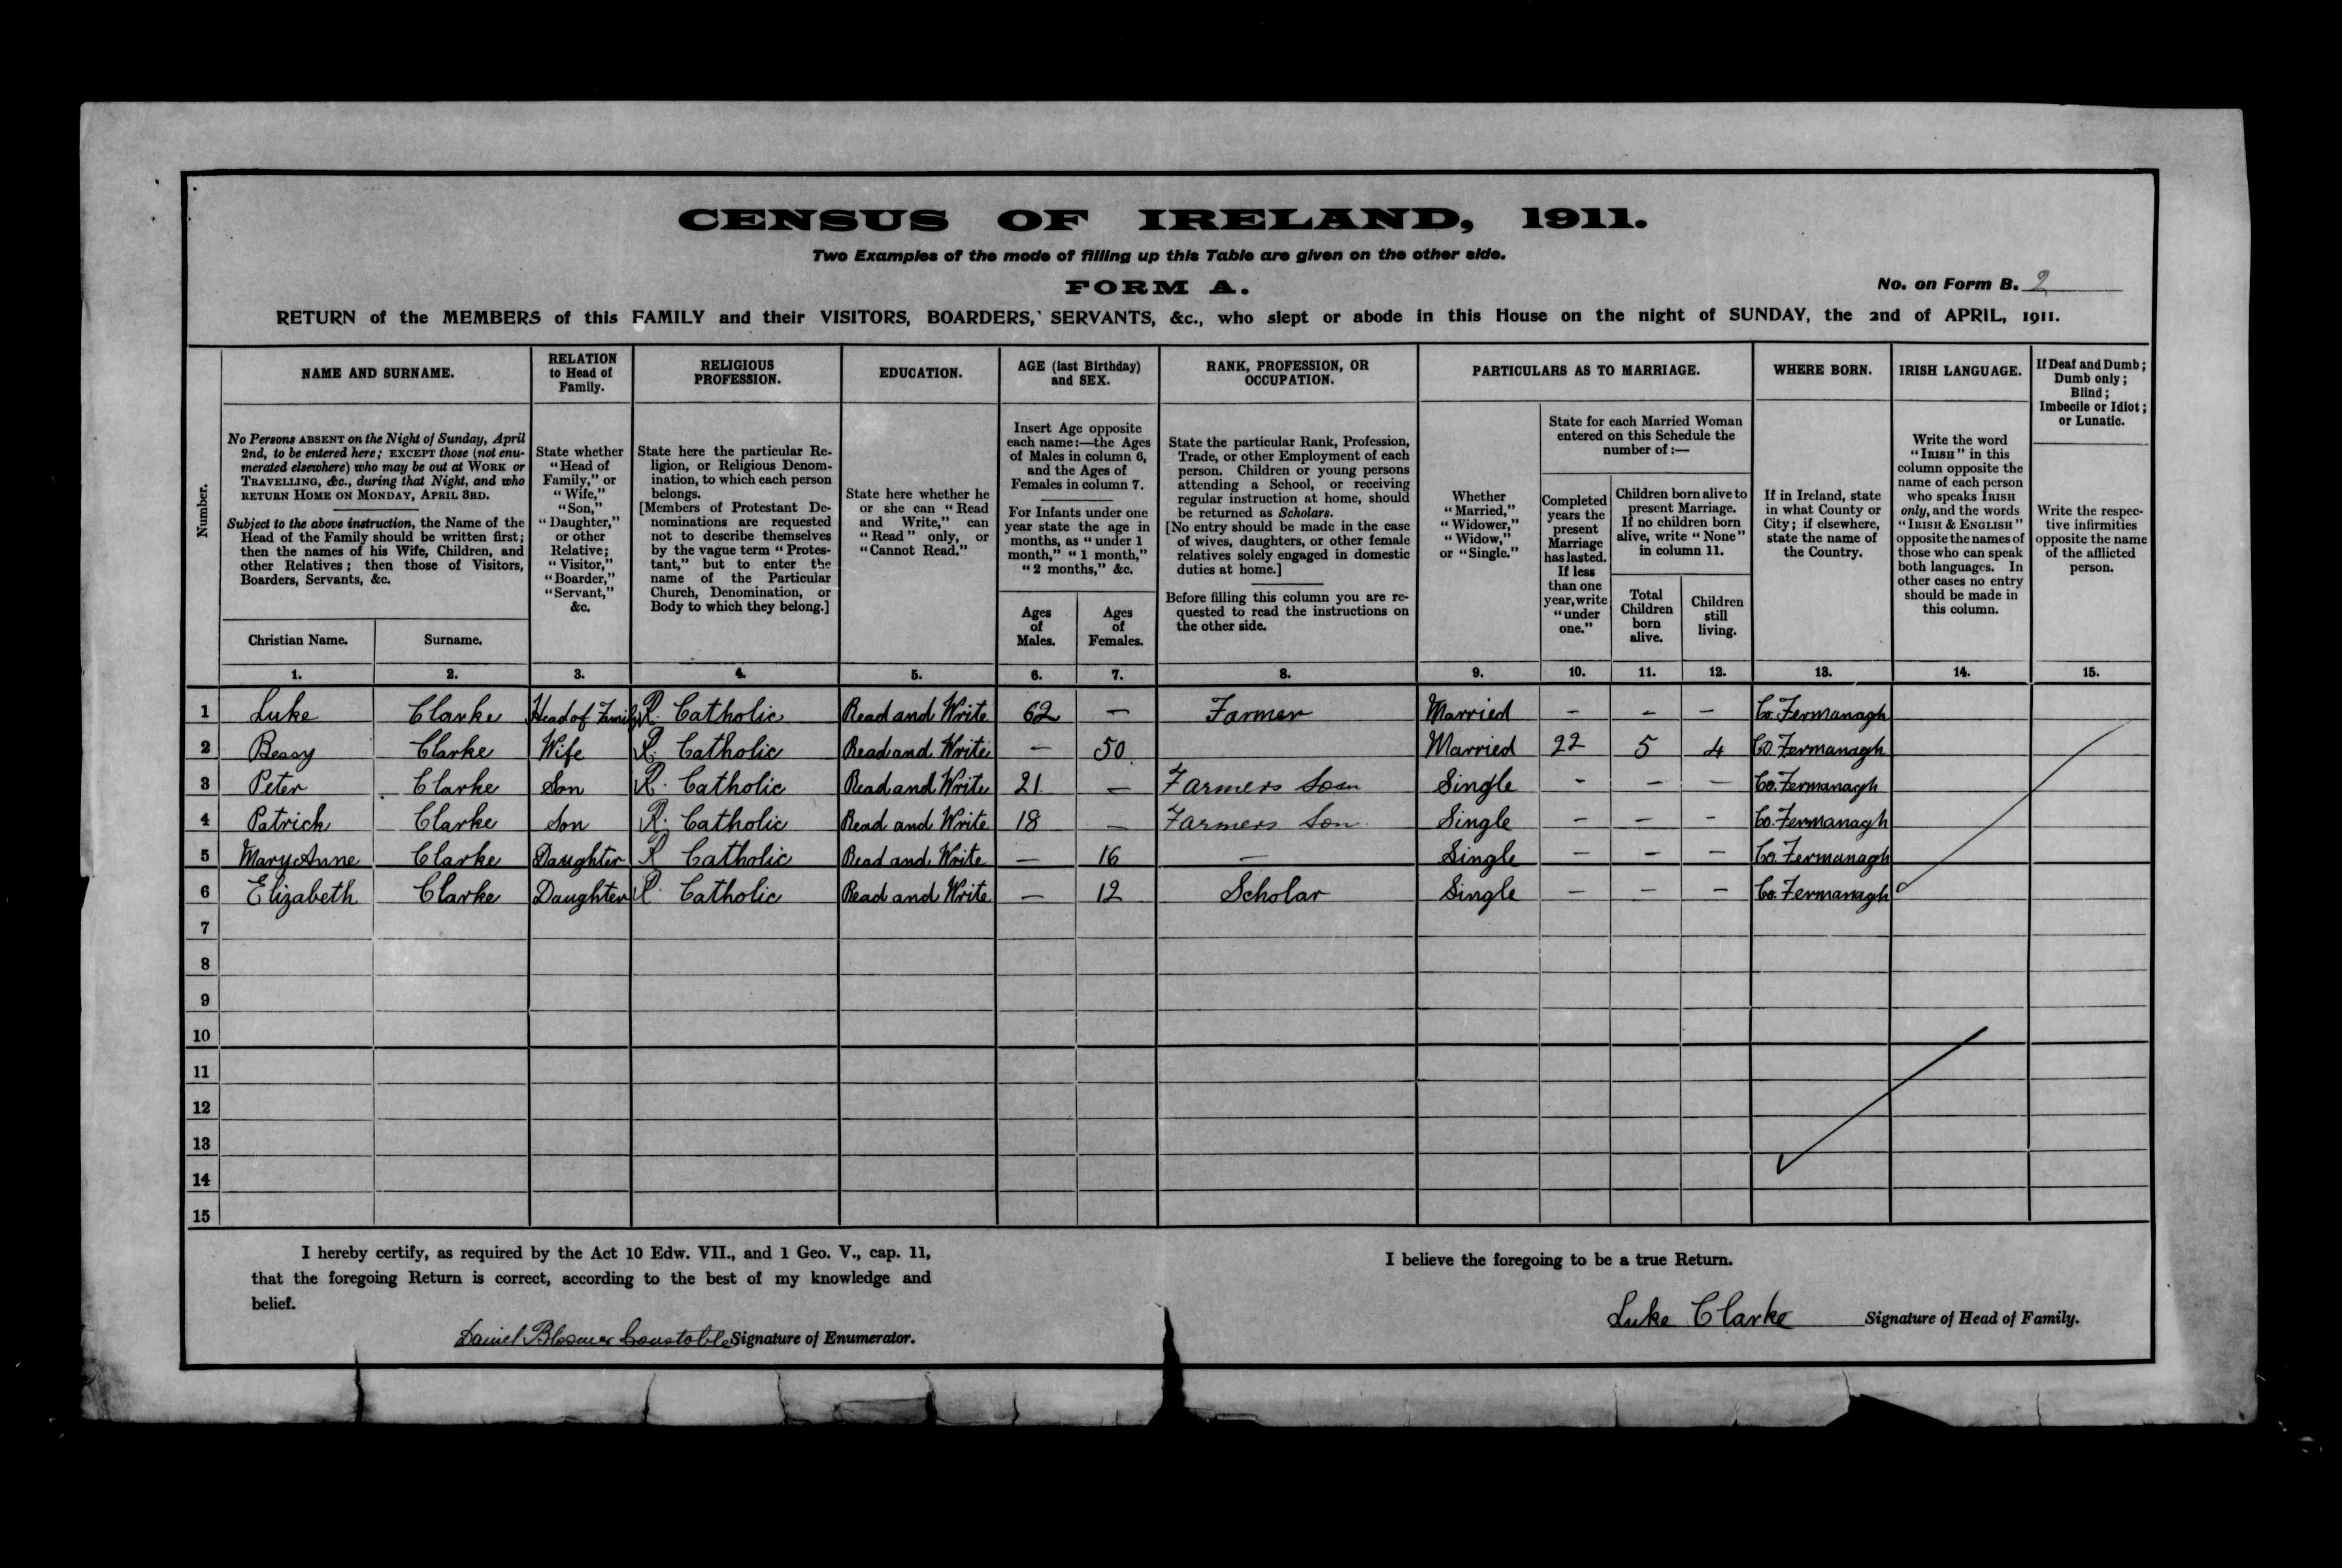 CENSUS OF IRELAND, 1911.
Two Examples of the mode of filling up this Table are given on the other side.
FORM A.
No. on Form B. 2
RETURN of the MEMBERS of this FAMILY and their VISITORS, BOARDERS, SERVANTS, &c., who slept or abode in this House on the night of SUNDAY, the 2nd of APRIL, 1911.
Number.
NAME AND SURNAME.
No Persons ABSENT on the Night of Sunday, April
2nd, to be entered here; EXCEPT those (not enu-
merated elsewhere) who may be out at WORK or
TRAVELLING, &c., during that Night, and who
RETURN HOME ON MONDAY, APRIL 3RD.
Subject to the above instruction, the Name of the
Head of the Family should be written first;
then the names of his Wife, Children, and
other Relatives; then those of Visitors,
Boarders, Servants, &c.
Christian Name.
Surname.
RELATION
to Head of
Family.
State whether
"Head of
Family," or
"Wife,"
"Son,"
"Daughter,"
or other
Relative;
"Visitor,"
"Boarder,"
"Servant,"
&c.
RELIGIOUS
PROFESSION.
State here the particular Re-
ligion, or Religious Denom-
ination, to which each person
belongs.
[Members of Protestant De-
nominations are requested
not to describe themselves
by the vague term "Protes-
tant," but to enter the
name of the Particular
Church, Denomination, or
Body to which they belong.]
EDUCATION.
State here whether he
or she can "Read
and Write," can
"Read" only, or
"Cannot Read."
AGE (last Birthday)
and SEX.
Insert Age opposite
each name:—the Ages
of Males in column 6,
and the Ages of
Females in column 7.
For Infants under one
year state the age in
months, as "under 1
month," "1 month,"
"2 months," &c.
Ages
of
Males.
Ages
of
Females.
RANK, PROFESSION, OR
OCCUPATION.
State the particular Rank, Profession,
Trade, or other Employment of each
person. Children or young persons
attending a School, or receiving
regular instruction at home, should
be returned as Scholars.
[No entry should be made in the case
of wives, daughters, or other female
relatives solely engaged in domestic
duties at home.]
Before filling this column you are re-
quested to read the instructions on
the other side.
PARTICULARS AS TO MARRIAGE.
Whether
"Married,"
"Widower,"
"Widow,"
or "Single."
State for each Married Woman
entered on this Schedule the
number of:—
Completed
years the
present
Marriage
has lasted.
If less
than one
year, write
"under
one."
Children born alive to
present Marriage.
If no children born
alive, write "None"
in column 11.
Total
Children
born
alive.
Children
still
living.
WHERE BORN.
If in Ireland, state
in what County or
City; if elsewhere,
state the name of
the Country.
IRISH LANGUAGE.
Write the word
"IRISH" in this
column opposite the
name of each person
who speaks IRISH
only, and the words
"IRISH & ENGLISH"
opposite the names of
those who can speak
both languages. In
other cases no entry
should be made in
this column.
If Deaf and Dumb;
Dumb only;
Blind;
Imbecile or Idiot;
or Lunatic.
Write the respec-
tive infirmities
opposite the name
of the afflicted
person.
1. 2. 3. 4. 5. 6. 7. 8. 9. 10. 11. 12. 13. 14. 15.
1 Luke Clarke Head of Family R. Catholic Read and Write 62 — Farmer Married - - - Co. Fermanagh
2 Bessy Clarke Wife R. Catholic Read and Write — 50 Married 22 5 4 Co. Fermanagh
3 Peter Clarke Son R. Catholic Read and Write 21 — Farmers Son Single - - - Co. Fermanagh
4 Patrick Clarke Son R. Catholic Read and Write 18 — Farmers Son Single - - - Co. Fermanagh
5 Mary Anne Clarke Daughter R Catholic Read and Write — 16 — Single - - - Co. Fermanagh
6 Elizabeth Clarke Daughter R. Catholic Read and Write — 12 Scholar Single - - - Co. Fermanagh
7
8
9
10
11
12
13
14
15
I hereby certify, as required by the Act 10 Edw. VII., and 1 Geo. V., cap. 11,
that the foregoing Return is correct, according to the best of my knowledge and
belief.
Daniel Constable Signature of Enumerator.
I believe the foregoing to be a true Return.
Luke Clarke Signature of Head of Family.